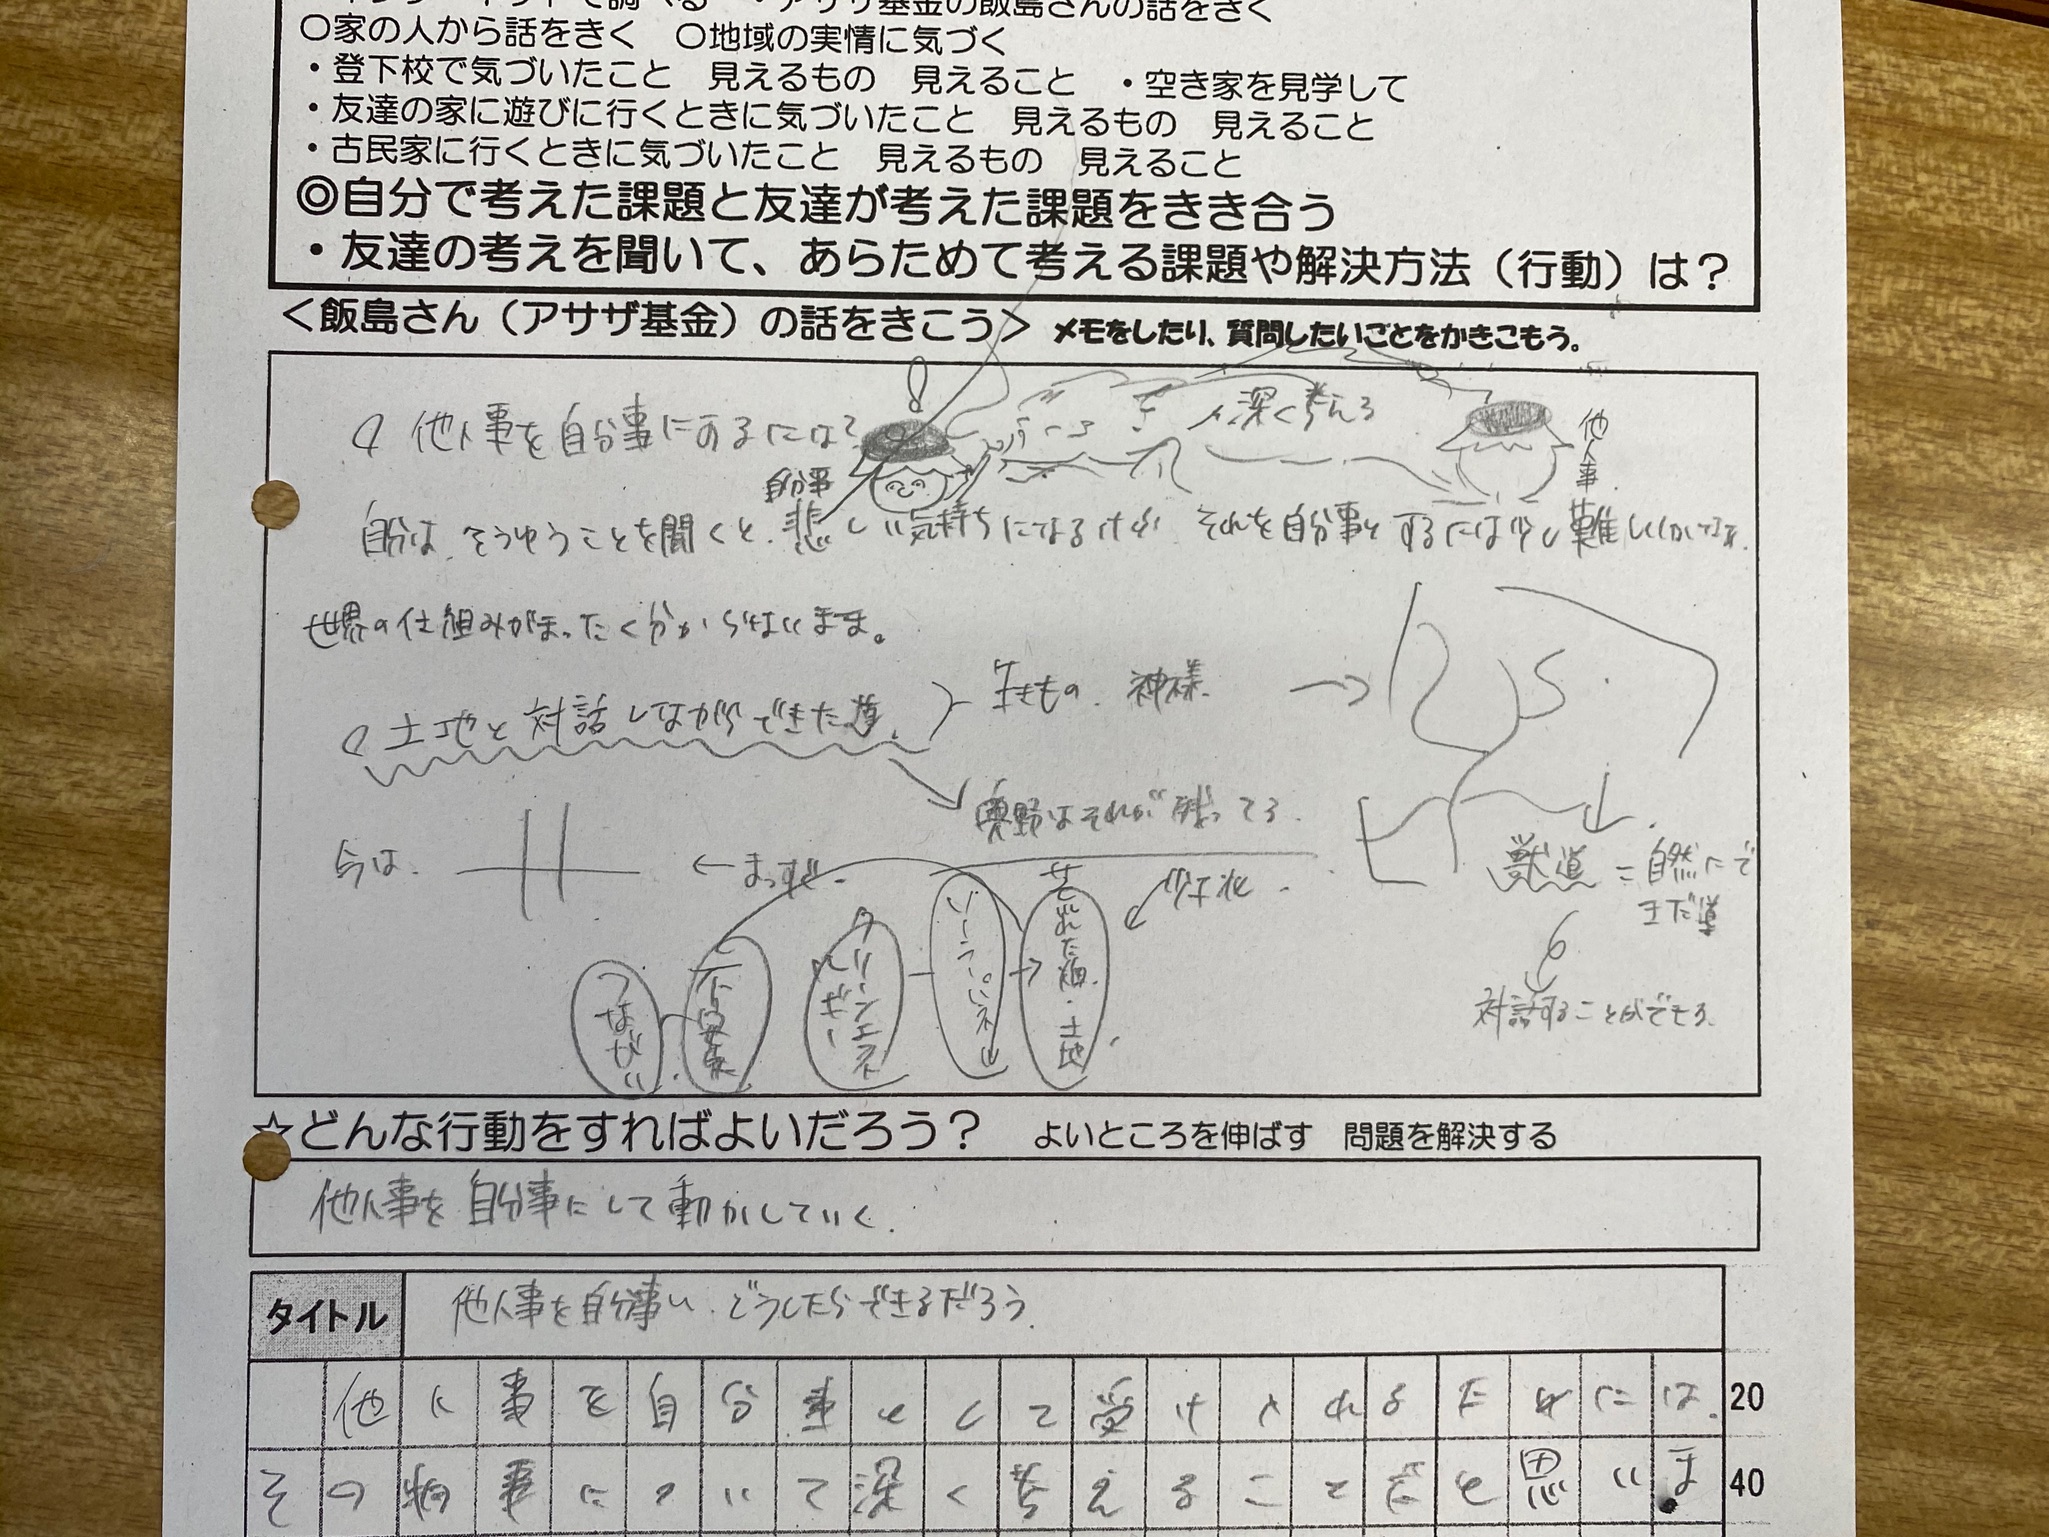 で調べる ・アサザ基金の飯島さんの話をきく
○家の人から話をきく ○地域の実情に気づく
・登下校で気づいたこと 見えるもの 見えること ・空き家を見学して
・友達の家に遊びに行くときに気づいたこと 見えるもの 見えること
・古民家に行くときに気づいたこと 見えるもの 見えること
◎自分で考えた課題と友達が考えた課題をきき合う
・友達の考えを聞いて、あらためて考える課題や解決方法（行動）は？
＜飯島さん（アサザ基金）の話をきこう＞ メモをしたり、質問したいことをかきこもう。
他人事を自分事にするには？
深く考える
自分事
他人事
自分は、そうゆうことを聞くと、悲しい気持ちになるけど それを自分事とするには少し難しい
世界の仕組みがまったく分からないまま。
土地と対話しながらできた道
生きもの 神様
奥野はそれが残ってる
今は
←まっすぐ
獣道＝自然にで
きた道
対話することができる
荒れた畑・土地
ソーラーパネル
クリーンエネルギー
つながり
☆どんな行動をすればよいだろう？ よいところを伸ばす 問題を解決する
他人事を自分事にして動かしていく
タイトル
他人事を自分事に、どうしたらできるだろう。
他人事を自分事として受け入れるためには、 20
その物事について深く考えることだと思いま 40